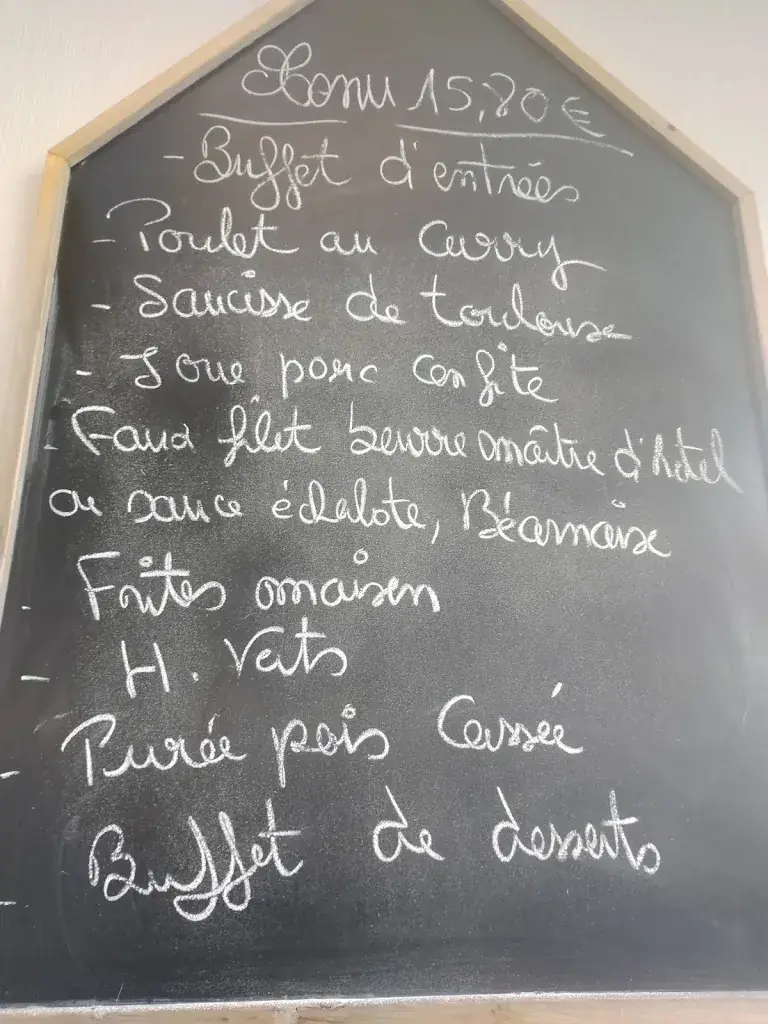 Menu 15,80 €
- Buffet d'entrées
- Poulet au curry
- Saucisse de toulouse
- Joue porc confite
- Faux filet beurre maître d'hôtel
ou sauce échalote, Béarnaise
- Frites maison
- H. Verts
- Purée pois Cassée
- Buffet de desserts